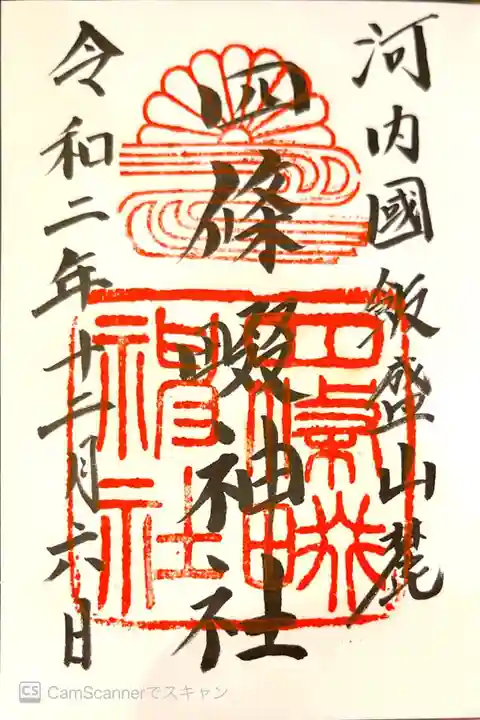 河内國飯盛山麓
四條畷神社
令和二年十二月六日
CS CamScannerでスキャン